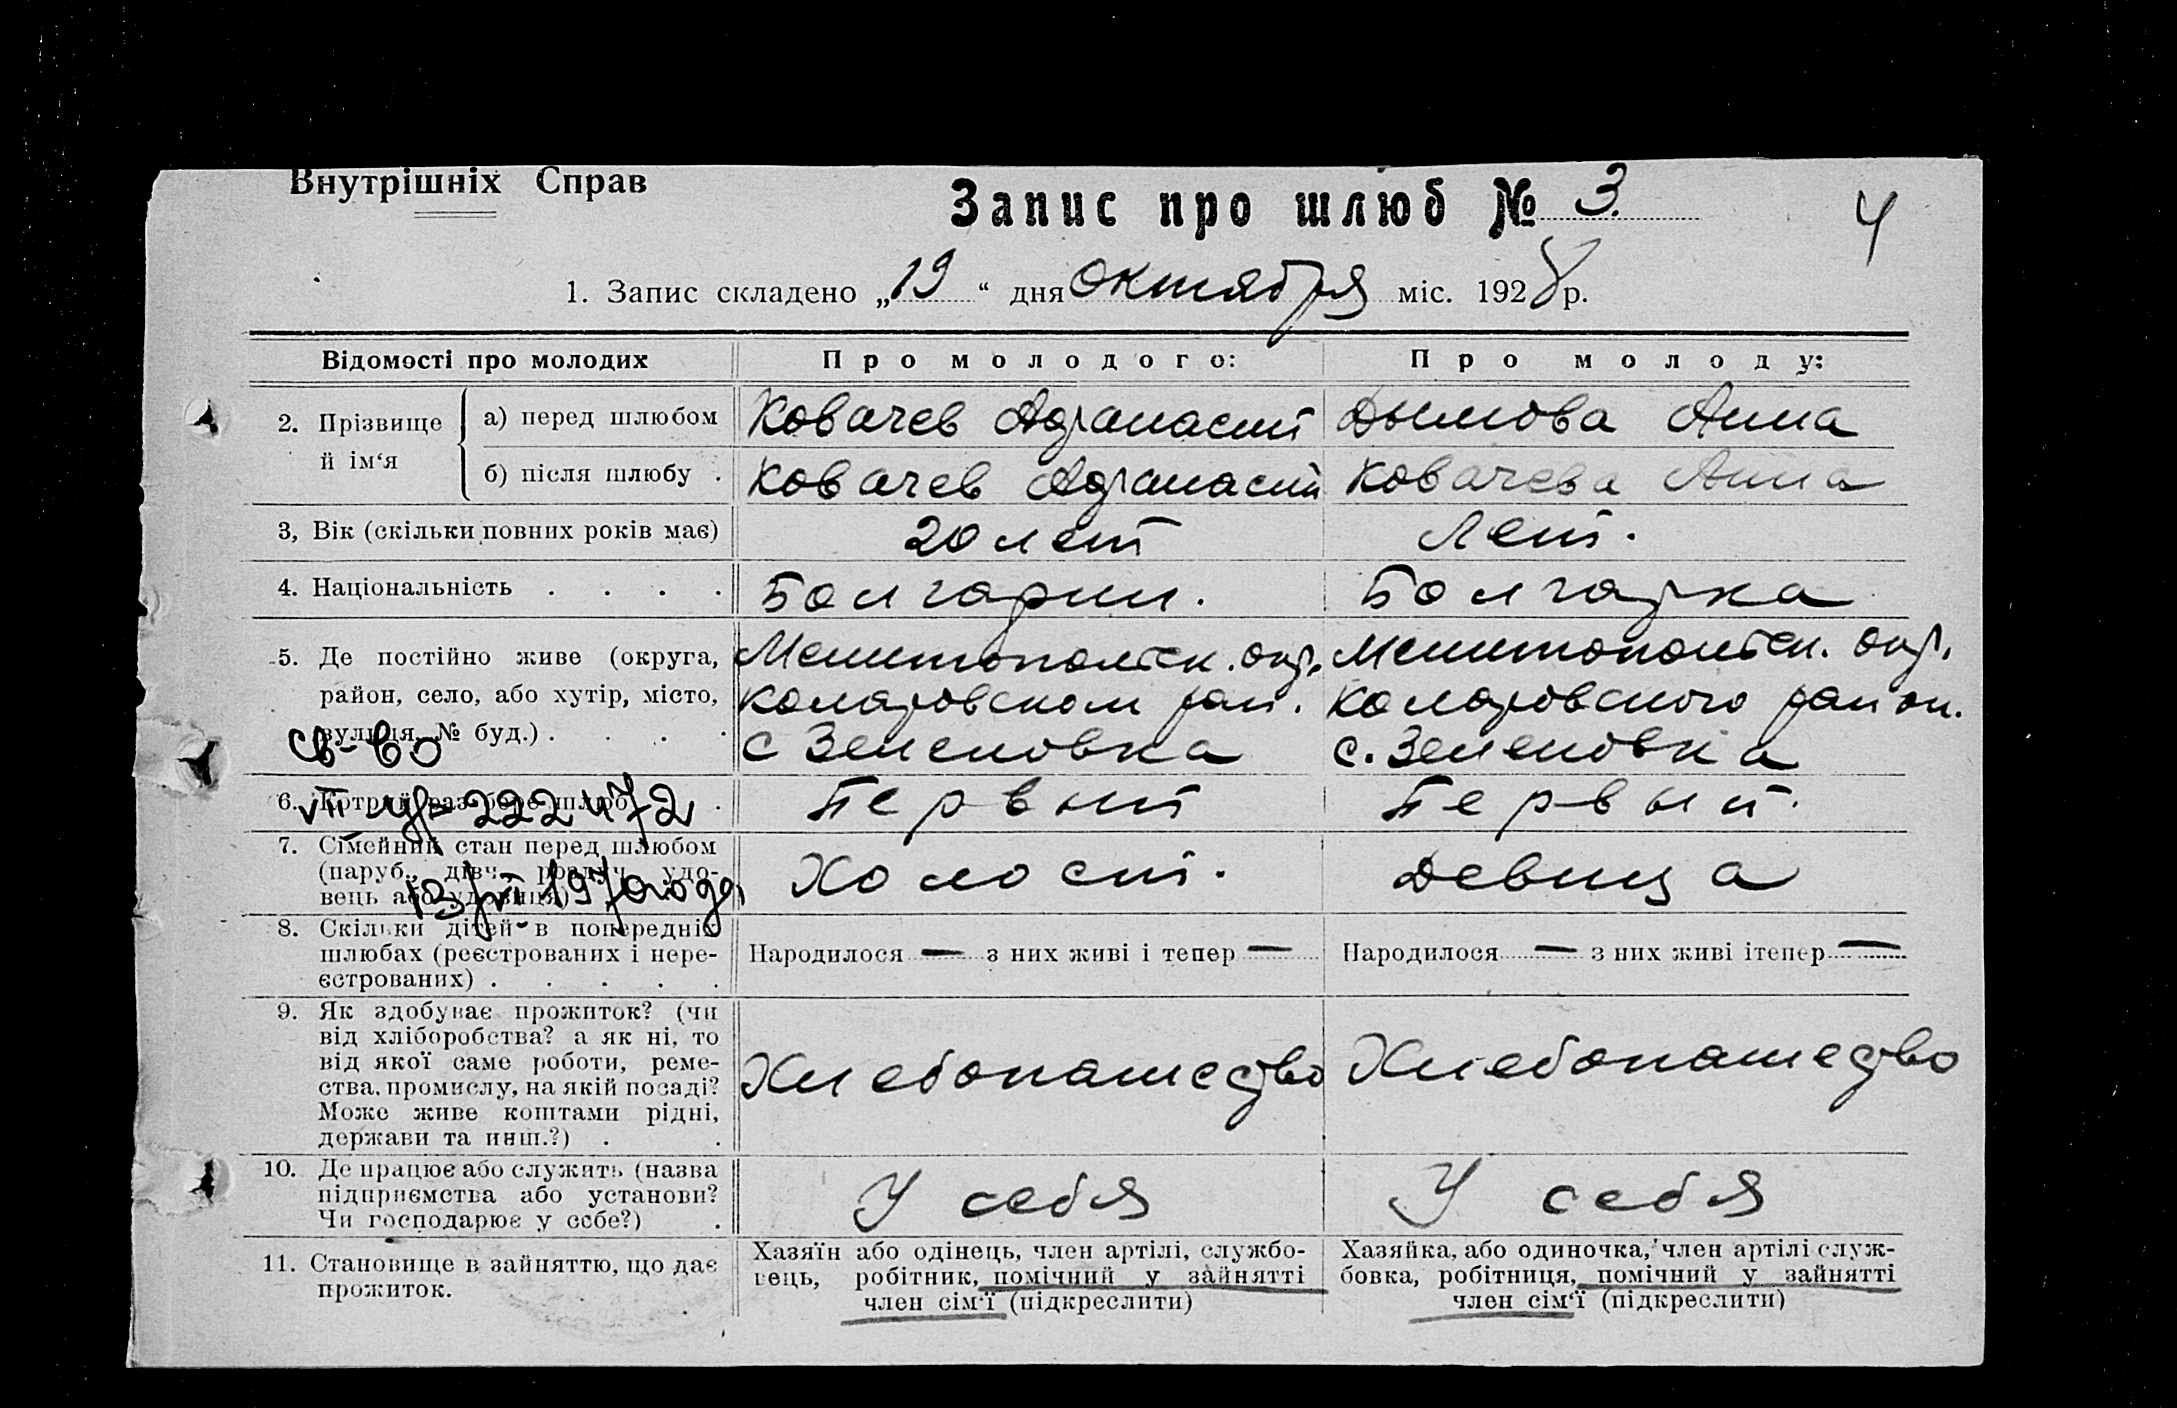 Внутрішніх Справ
Запис про шлюб № 3.
4
1. Запис складено „19“ дня Октября міс. 1928 р.
Відомості про молодих
Про молодого:
Про молоду:
2. Прізвище й ім‘я
а) перед шлюбом
Ковачев Афанасий
Дымова Анна
б) після шлюбу .
Ковачев Афанасий
Ковачева Анна
3, Вік (скільки повних років має)
20 лет
Лет.
4. Національність . . . .
Болгарин.
Болгарка
5. Де постійно живе (округа,
район, село, або хутір, місто,
вулиця, № буд.) . . . .
Мелитопольск. окр.
Коларовском рай.
с Зеленовка
Мелитопольск. окр.
Коларовского район.
с. Зеленовка
св-во
6. Котрий раз бере шлюб .
Первый
Первый.
222472
7. Сімейний стан перед шлюбом
(паруб., дівч., розлуч., удо-
вець або удовиця)
Холост.
Девица
13/VI 1970 года
8. Скільки дітей в попередніх
шлюбах (реєстрованих і нере-
єстрованих) . . . . .
Народилося — з них живі і тепер —
Народилося — з них живі ітепер —
9. Як здобуває прожиток? (чи
від хліборобства? а як ні, то
від якої саме роботи, реме-
ства, промислу, на якій посаді?
Може живе коштами рідні,
держави та инш.?) . .
Хлебопашество
Хлебопашество
10. Де працює або служить (назва
підприємства або установи?
Чи господарює у себе?) .
У себя
У себя
11. Становище в зайняттю, що дає
прожиток.
Хазяїн або одінець, член артілі, службо-
вець, робітник, помічний у зайнятті
член сім‘ї (підкреслити)
Хазяйка, або одиночка, член артілі служ-
бовка, робітниця, помічний у зайнятті
член сім‘ї (підкреслити)